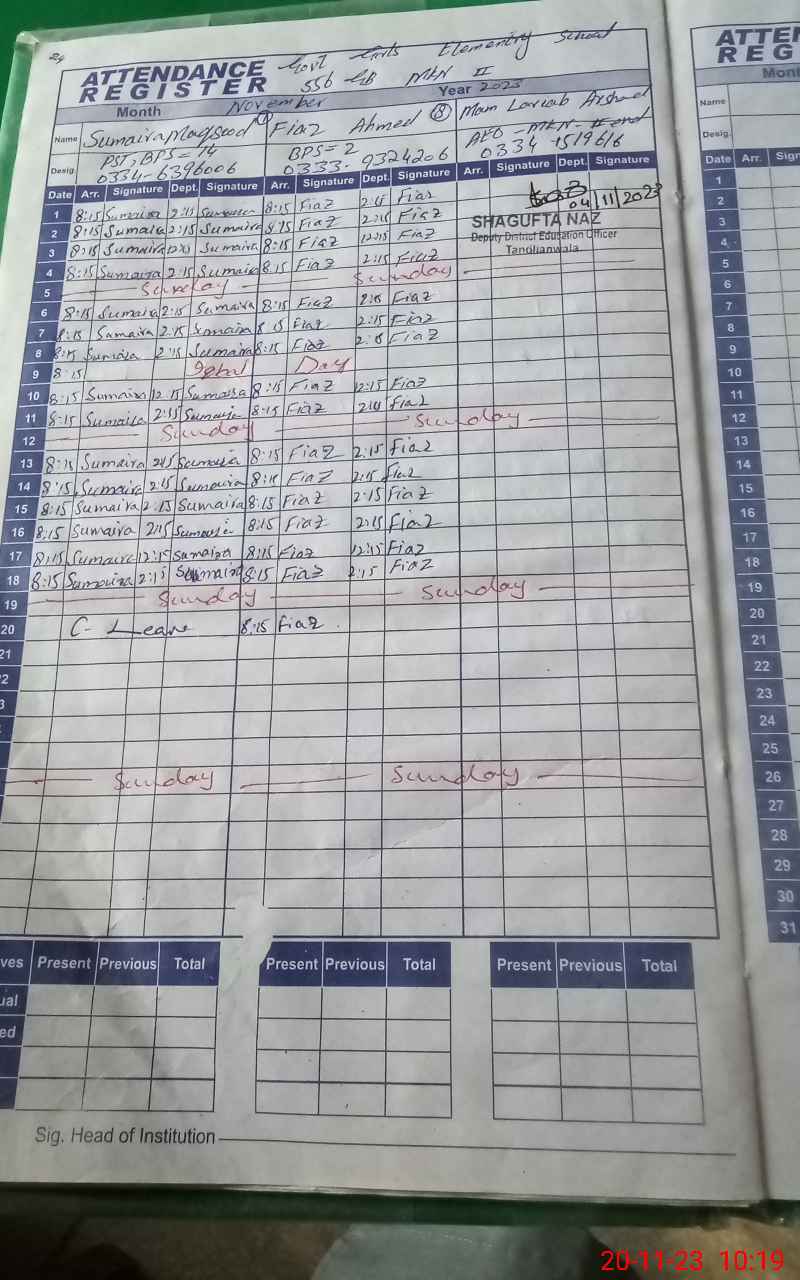 24
ATTENDANCE REGISTER
Govt Girls Elementry School
556 GB MKN II
Month November Year 2023
Name Sumaira Maqsood Fiaz Ahmed 8 Mam Laraib Arshad
Desig. PST, BPS = 14 BPS = 2 AEO - MKN - II
0334-6396006 0333-9324206 0334-1519616
Date Arr. Signature Dept. Signature Arr. Signature Dept. Signature Arr. Signature Dept. Signature
1 8:15 Sumaira 2:15 Sumaira 8:15 Fiaz 2:15 Fiaz
04/11/2023
2 8:15 Sumaira 2:15 Sumaira 8:15 Fiaz 2:15 Fiaz
SHAGUFTA NAZ
3 8:15 Sumaira 12:15 Sumaira 8:15 Fiaz 12:15 Fiaz
Deputy District Education Officer
Tandlianwala
4 8:15 Sumaira 2:15 Sumaira 8:15 Fiaz 2:15 Fiaz
5 Sunday Sunday
6 8:15 Sumaira 2:15 Sumaira 8:15 Fiaz 2:15 Fiaz
7 8:15 Sumaira 2:15 Sumaira 8:15 Fiaz 2:15 Fiaz
8 8:15 Sumaira 2:15 Sumaira 8:15 Fiaz 2:15 Fiaz
9 8:15 Iqbal Day
10 8:15 Sumaira 12:15 Sumaira 8:15 Fiaz 12:15 Fiaz
11 8:15 Sumaira 2:15 Sumaira 8:15 Fiaz 2:15 Fiaz
12 Sunday Sunday
13 8:15 Sumaira 2:15 Sumaira 8:15 Fiaz 2:15 Fiaz
14 8:15 Sumaira 2:15 Sumaira 8:15 Fiaz 2:15 Fiaz
15 8:15 Sumaira 2:15 Sumaira 8:15 Fiaz 2:15 Fiaz
16 8:15 Sumaira 2:15 Sumaira 8:15 Fiaz 2:15 Fiaz
17 8:15 Sumaira 12:15 Sumaira 8:15 Fiaz 12:15 Fiaz
18 8:15 Sumaira 2:15 Sumaira 8:15 Fiaz 2:15 Fiaz
19 Sunday Sunday
20 C- Leave 8:15 Fiaz
21
2
3
Sunday Sunday
ves Present Previous Total Present Previous Total Present Previous Total
ual
ed
Sig. Head of Institution
ATTEN
REG
Mont
Name
Desig.
Date Arr. Sign
1
2
3
4
5
6
7
8
9
10
11
12
13
14
15
16
17
18
19
20
21
22
23
24
25
26
27
28
29
30
31
20-11-23 10:19